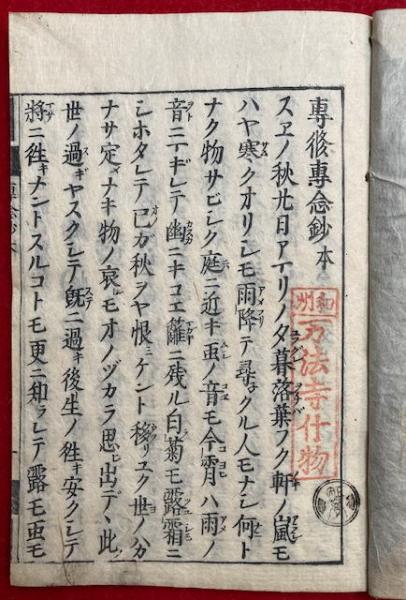 專修專念鈔 本
スヱノ秋廿日アマリノ夕暮落葉フク軒ノ嵐モ
ハヤ寒クオリシモ雨降テ尋クル人モナシ何ト
ナク物サビシク庭ニ近キ虫ノ音モ今霄ハ雨ノ
音ニマギレテ幽ニキコエ籬ニ残ル白菊モ露霜ニ
シホタレテ己カ秋ヲヤ恨ミケント移リユク世ノハカ
ナサ定メナキ物ノ哀レモオノヅカラ思ヒ出デヽ此
世ノ過ギヤスクシテ既ニ過キ後生ノ徃キ安クシテ
將ニ徃キナントスルコトモ更ニ知ラレテ露モ虫モ
和州
万法寺什物